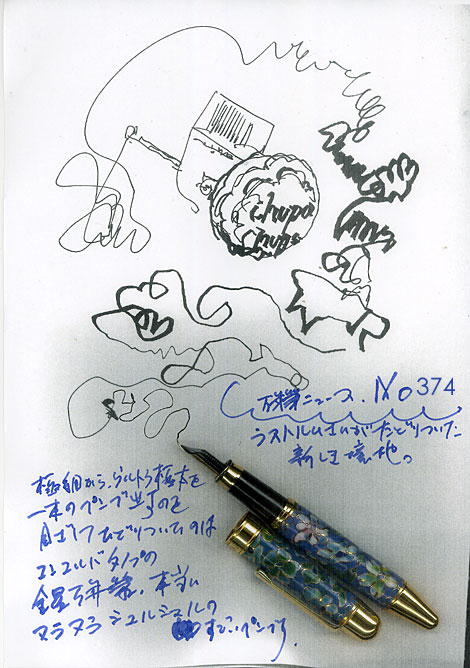 chupa
chups
萬筆ニュース. No374
ラストルムさんがたどりついた
新しい境地。
極細から、ウルトラ極太を
一本のペンで出すのを
目ざしてたどりついたのは
エンコルドタイプの
金星万年筆、本当に
ヌラヌラ シュルシュルの
すごいペンです